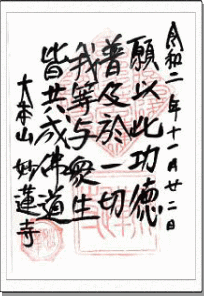 令和二年十一月廿二日
願以此功徳
普及於一切
我等与衆生
皆共成佛道
大本山妙蓮寺